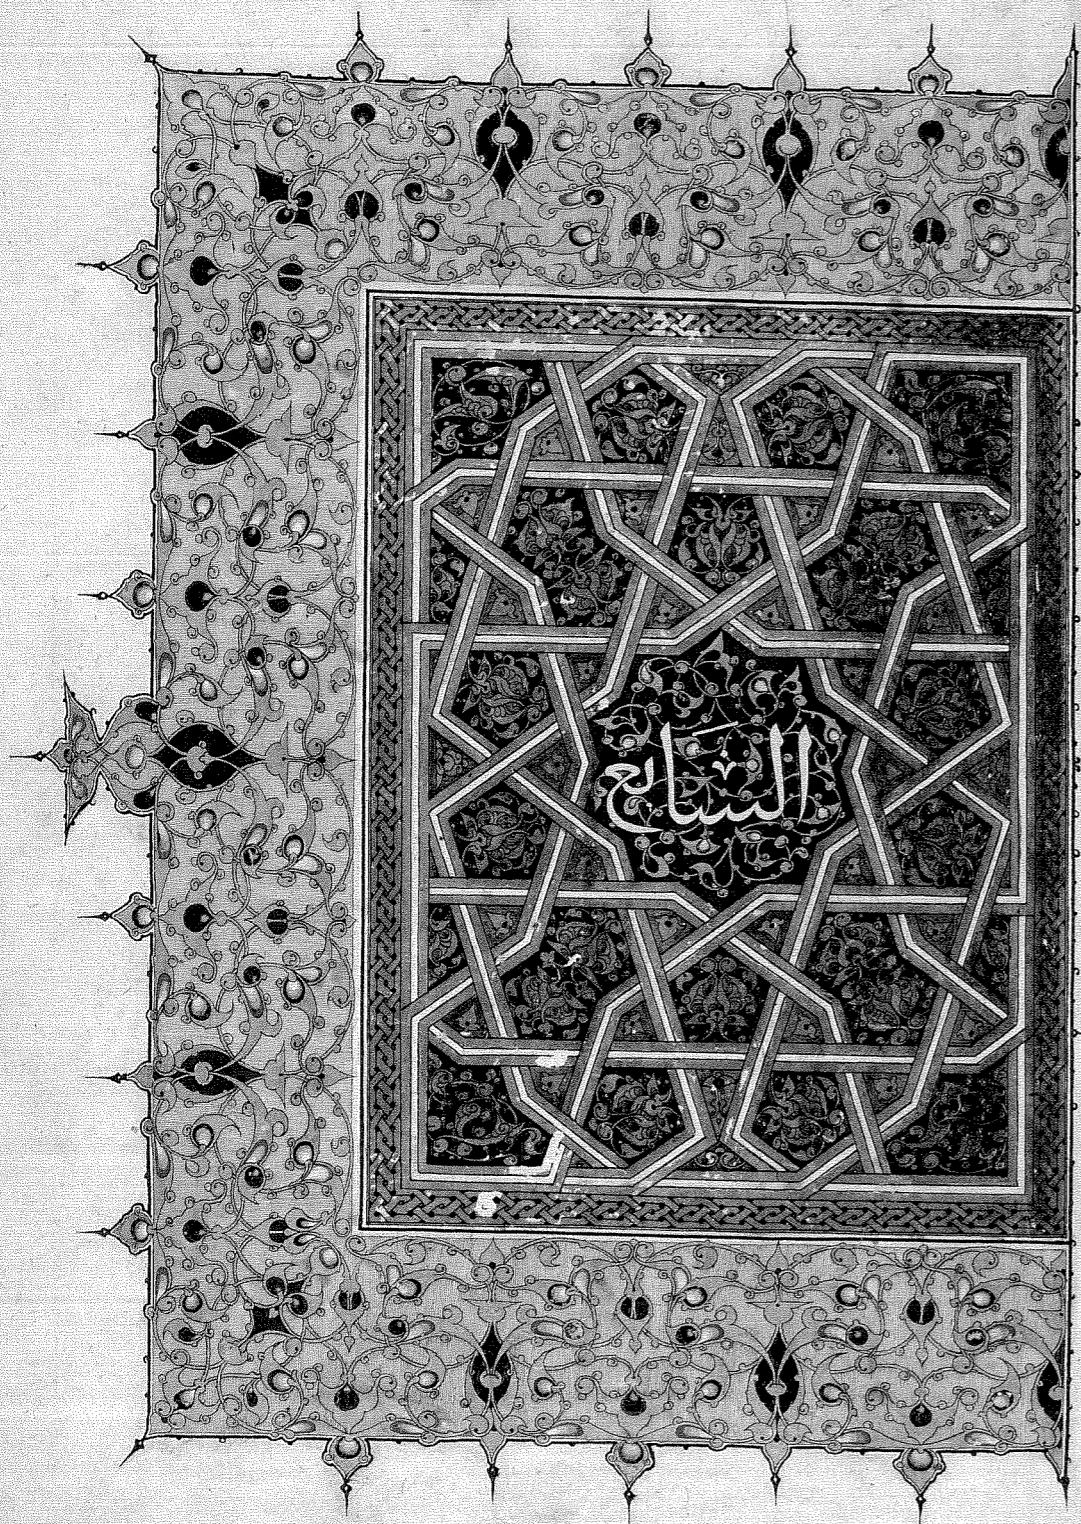 السابع